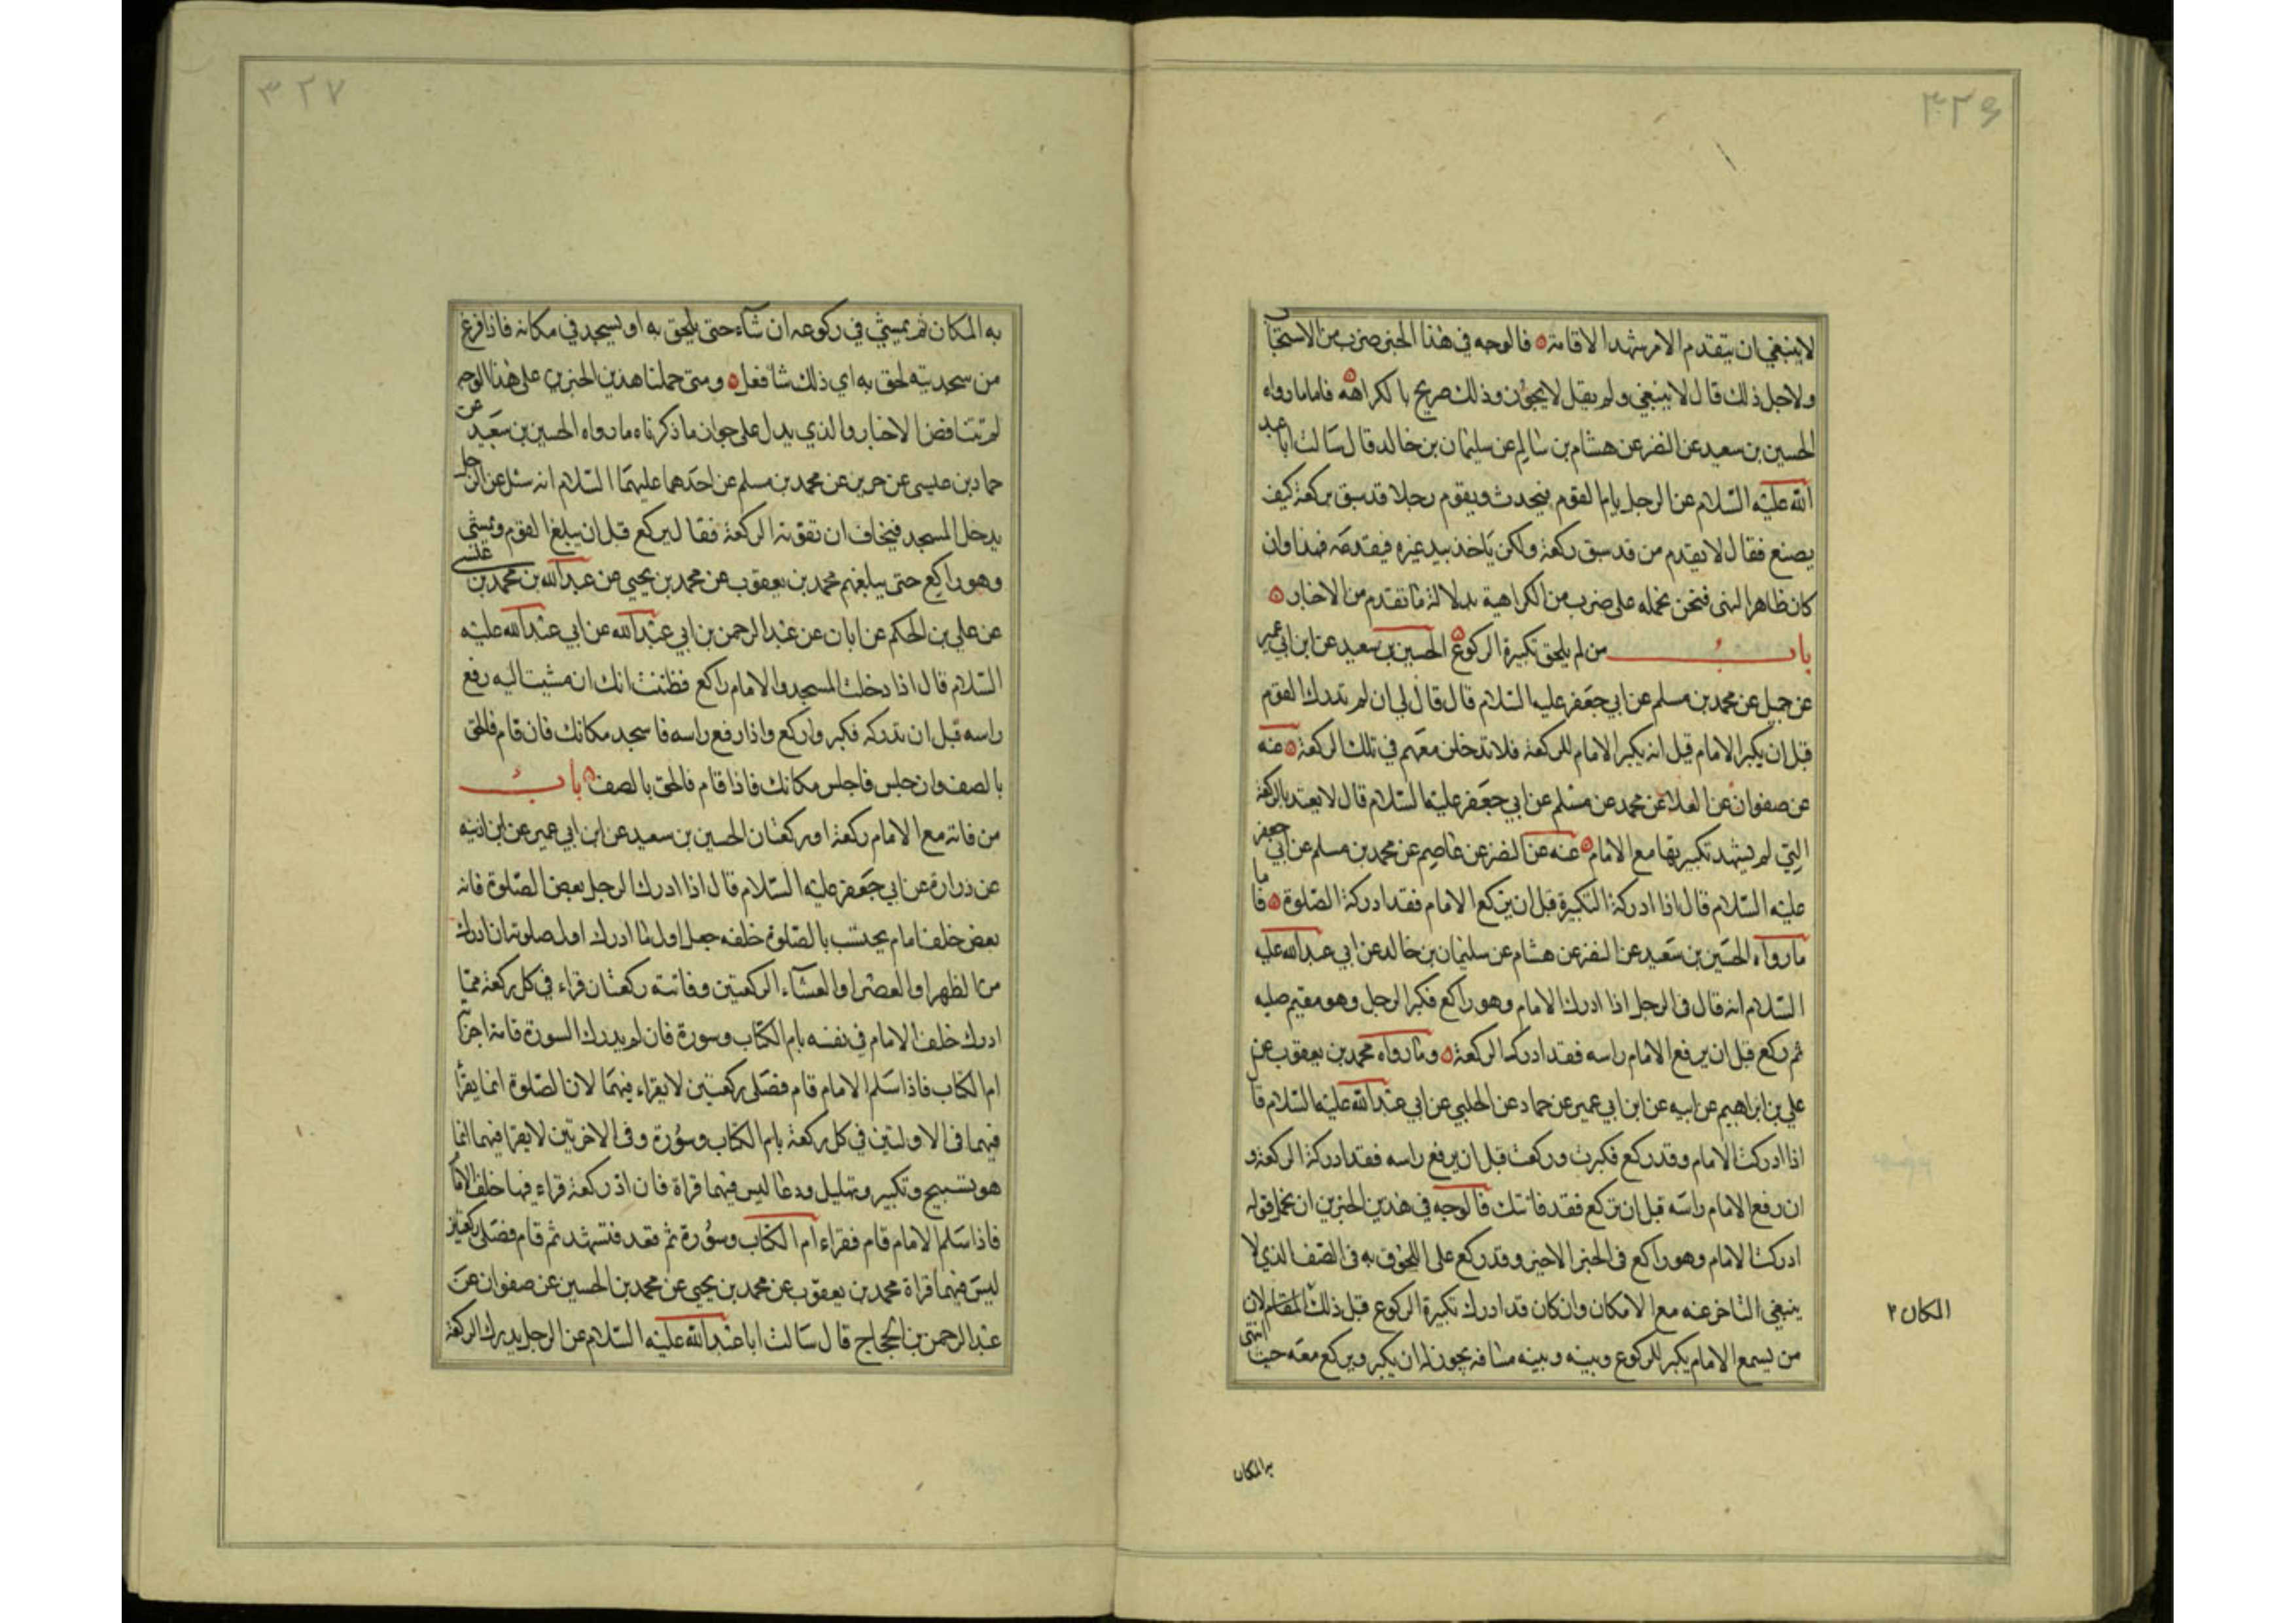 ٣٢٦
لا ينبغي ان يتقدم الا من شهد الاقامة فالوجه في هذا الخبر ضرب من الاستحباب
ولاجل ذلك قال لا ينبغي ولم يقل لا يجوز وذلك صريح بالكراهة فاما ما رواه
الحسين بن سعيد عن النضر عن هشام بن سالم عن سليمان بن خالد قال سالت ابا عبد
الله عليه السلام عن الرجل يام القوم فيحدث ويقوم رجلا قد سبق بركعة كيف
يصنع فقال لا يقدم من قد سبق ركعة ولكن ياخذ بيد غيره فيقدمه فهذا وان
كان ظاهر النهى فنحن نحمله على ضرب من الكراهية بدلالة ما تقدم من الاخبار
باب من لم يلحق تكبيرة الركوع الحسين بن سعيد عن ابن ابي عمير
عن جميل عن محمد بن مسلم عن ابي جعفر عليه السلام قال قال لي ان لم تدرك القوم
قبل ان يكبر الامام قبل انه يكبر الامام للركعة فلا تدخلن معهم في تلك الركعة عنه
عن صفوان عن العلا عن محمد عن مسلم عن ابي جعفر عليه السلام قال لا يعتد بالركعة
التي لم يشهد تكبيرتها مع الامام عنه عن النضر عن عاصم عن محمد بن مسلم عن ابي جعفر
عليه السلام قال اذا ادركة التكبيرة قبل ان يركع الامام فقد ادركة الصلوة فاما
ما رواه الحسين بن سعيد عن النضر عن هشام عن سليمان بن خالد عن ابي عبد الله عليه
السلام انه قال في الرجل اذا ادرك الامام وهو راكع فكبر الرجل وهو مقيم صلبه
ثم ركع قبل ان يرفع الامام راسه فقد ادرك الركعة وما رواه محمد بن يعقوب عن
علي بن ابراهيم عن ابيه عن ابن ابي عمير عن حماد عن الحلبي عن ابي عبد الله عليه السلام قا
اذا ادركت الامام وقد ركع فكبرت وركعت قبل ان يرفع راسه فقد ادركة الركعة و
ان رفع الامام راسه قبل ان تركع فقد فاتتك فالوجه في هذين الخبرين ان نحمل قوله
ادركت الامام وهو راكع في الخبر الاخير وقد ركع على اللحوق به في الصف الذي لا
ينبغي التاخر عنه مع الامكان وان كان قد ادرك تكبيرة الركوع قبل ذلك المقام لان
المكان ٢
من يسمع الامام يكبر للركوع وبينه وبينه مسافة يجوز له ان يكبر ويركع معه حيث انتهى
به المكان
٣٢٧
به المكان ثم يمشي في ركوعه ان شاء حتى يلحق به او يسجد في مكانه فاذا فرغ
من سجدتيه لحق به اي ذلك شا فعل ومتى حملنا هذين الخبرين على هذا الوجه
لم تتناقض الاخبار والذي يدل على جواز ما ذكرناه ما رواه الحسين بن سعيد عن
حماد بن عيسى عن حريز عن محمد بن مسلم عن احدهما عليهما السلام انه سئل عن الرجل
يدخل المسجد فيخاف ان تفوته الركعة فقال يركع قبل ان يبلغ القوم ويمشي
وهو راكع حتى يبلغهم محمد بن يعقوب عن محمد بن يحيى عن عبد الله بن محمد بن عيسى
عن علي بن الحكم عن ابان عن عبد الرحمن بن ابي عبد الله عن ابي عبد الله عليه
السلام قال اذا دخلت المسجد والامام راكع فظننت انك ان مشيت اليه رفع
راسه قبل ان تدركه فكبر واركع واذا رفع راسه فاسجد مكانك فان قام فالحق
بالصف وان جلس فاجلس مكانك فاذا قام فالحق بالصف باب
من فاته مع الامام ركعة او ركعتان الحسين بن سعيد عن ابن ابي عمير عن ابن اذينه
عن زرارة عن ابي جعفر عليه السلام قال اذا ادرك الرجل بعض الصلوة فاته
بعض خلف امام يحتسب بالصلوة خلفه جعل اول ما ادرك اول صلوته ان ادرك
من الظهر او العصر او العشاء الركعتين وفاتته ركعتان قراء في كل ركعة مما
ادرك خلف الامام في نفسه بام الكتاب وسورة فان لم يدرك السورة تامة اجزاته
ام الكتاب فاذا سلم الامام قام فصلى ركعتين لا يقراء فيهما لان الصلوة انما يقرا
فيهما في الاولتين في كل ركعة بام الكتاب وسورة وفي الاخرتين لا يقرا فيهما انما
هو تسبيح وتكبير وتهليل ودعا ليس فيهما قراة فان ادرك ركعة قراء فيها خلف الامام
فاذا سلم الامام قام فقراء ام الكتاب وسورة ثم قعد فتشهد ثم قام فصلى ركعتين
ليس فيهما قراة محمد بن يعقوب عن محمد بن يحيى عن محمد بن الحسين عن صفوان عن
عبد الرحمن بن الحجاج قال سالت ابا عبد الله عليه السلام عن الرجل يدرك الركعة